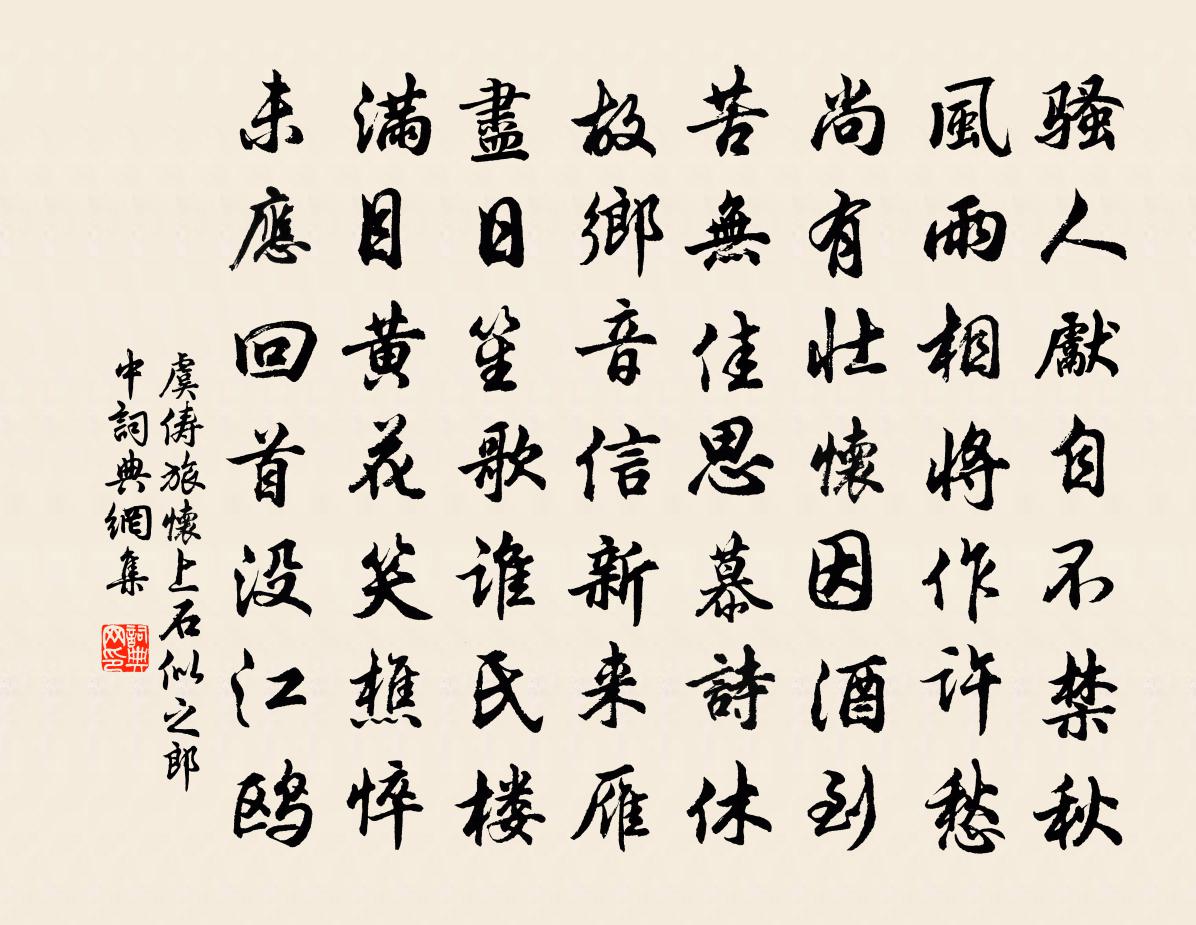 骚人獻自不禁秋
風雨相將作许愁
尚有壮懷因酒到
苦無佳思慕詩休
故鄉音信新来雁
盡日笙歌谁氏楼
滿目黄花笑樵悴
未應回首没江鸥
虞俦旅懷上石似之郎
中詞典網集
詞典网印